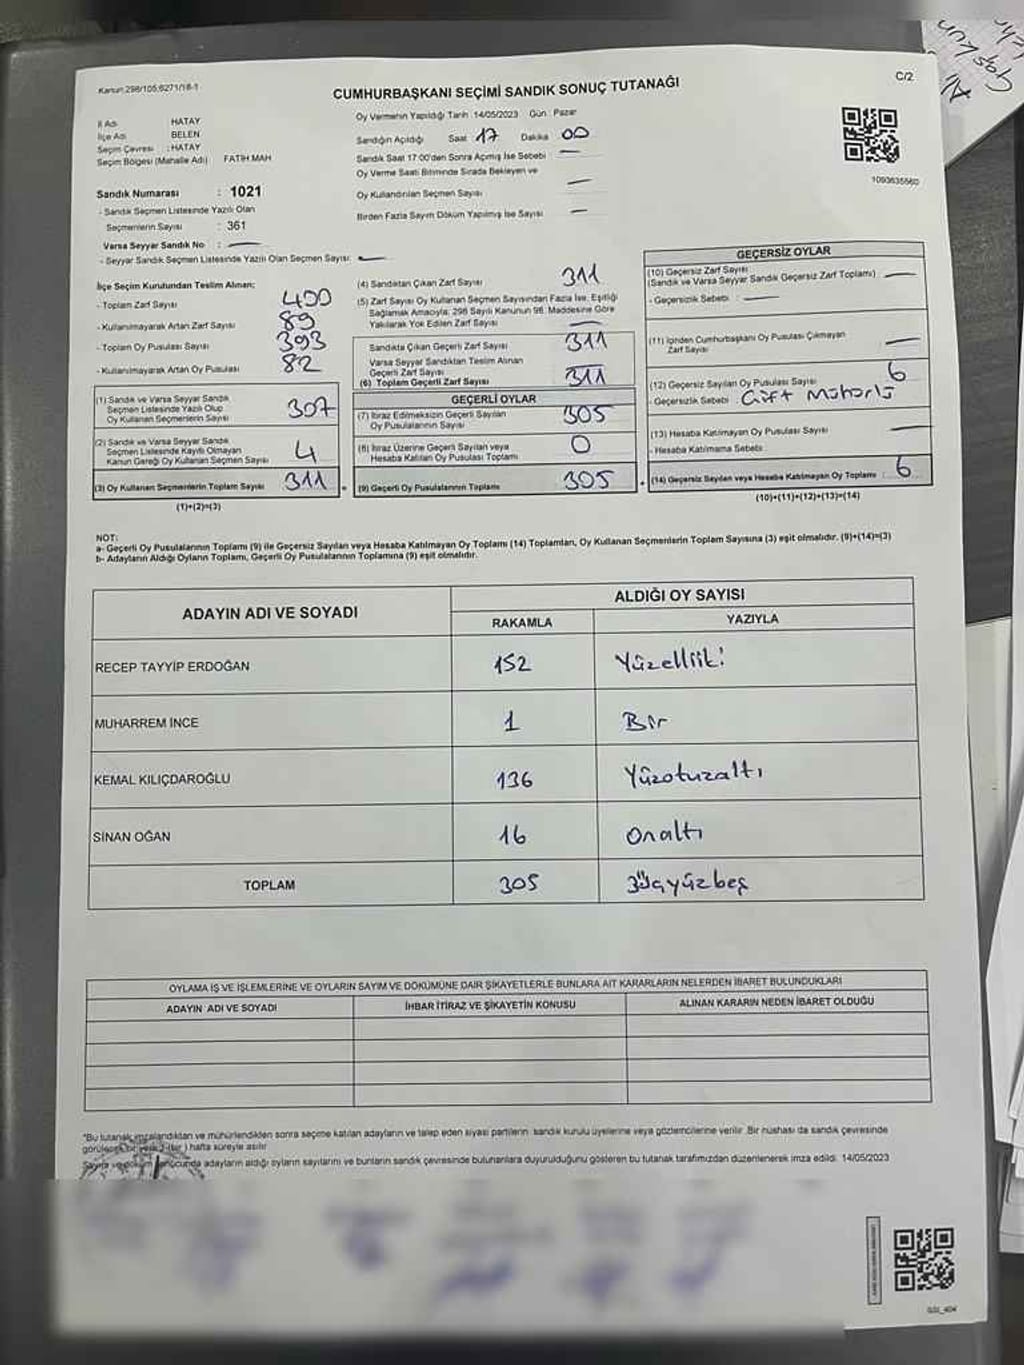 Kanun:298/105,6271/18-1
C/2
CUMHURBAŞKANI SEÇİMİ SANDIK SONUÇ TUTANAĞI
İl Adı HATAY
İlçe Adı BELEN
Seçim Çevresi : HATAY
Seçim Bölgesi (Mahalle Adı) FATİH MAH
Sandık Numarası : 1021
- Sandık Seçmen Listesinde Yazılı Olan
Seçmenlerin Sayısı : 361
Varsa Seyyar Sandık No : —
- Seyyar Sandık Seçmen Listesinde Yazılı Olan Seçmen Sayısı: —
Oy Vermenin Yapıldığı Tarih 14/05/2023 Gün Pazar
Sandığın Açıldığı Saat 17 Dakika 00
Sandık Saat 17:00'den Sonra Açmış İse Sebebi —
Oy Verme Saati Bitiminde Sırada Bekleyen ve
Oy Kullandırılan Seçmen Sayısı —
Birden Fazla Sayım Döküm Yapılmış İse Sayısı —
1093635560
İlçe Seçim Kurulundan Teslim Alınan;
- Toplam Zarf Sayısı 400
- Kullanılmayarak Artan Zarf Sayısı 89
- Toplam Oy Pusulası Sayısı 393
- Kullanılmayarak Artan Oy Pusulası 82
(1) Sandık ve Varsa Seyyar Sandık
Seçmen Listesinde Yazılı Olup
Oy Kullanan Seçmenlerin Sayısı 307
(2) Sandık ve Varsa Seyyar Sandık
Seçmen Listesinde Kayıtlı Olmayan
Kanun Gereği Oy Kullanan Seçmen Sayısı 4
(3) Oy Kullanan Seçmenlerin Toplam Sayısı 311
(1)+(2)=(3)
(4) Sandıktan Çıkan Zarf Sayısı 311
(5) Zarf Sayısı Oy Kullanan Seçmen Sayısından Fazla İse, Eşitliği
Sağlamak Amacıyla; 298 Sayılı Kanunun 98. Maddesine Göre
Yakılarak Yok Edilen Zarf Sayısı —
Sandıkta Çıkan Geçerli Zarf Sayısı 311
Varsa Seyyar Sandıktan Teslim Alınan
Geçerli Zarf Sayısı
(6) Toplam Geçerli Zarf Sayısı 311
GEÇERLİ OYLAR
(7) İtiraz Edilmeksizin Geçerli Sayılan
Oy Pusulalarının Sayısı 305
(8) İtiraz Üzerine Geçerli Sayılan veya
Hesaba Katılan Oy Pusulası Toplamı 0
(9) Geçerli Oy Pusulalarının Toplamı 305
GEÇERSİZ OYLAR
(10) Geçersiz Zarf Sayısı
(Sandık ve Varsa Seyyar Sandık Geçersiz Zarf Toplamı) —
- Geçersizlik Sebebi : —
(11) İçinden Cumhurbaşkanı Oy Pusulası Çıkmayan
Zarf Sayısı —
(12) Geçersiz Sayılan Oy Pusulası Sayısı 6
- Geçersizlik Sebebi : Çift Mühürlü
(13) Hesaba Katılmayan Oy Pusulası Sayısı —
- Hesaba Katılmama Sebebi
(14) Geçersiz Sayılan veya Hesaba Katılmayan Oy Toplamı 6
(10)+(11)+(12)+(13)=(14)
NOT:
a- Geçerli Oy Pusulalarının Toplamı (9) ile Geçersiz Sayılan veya Hesaba Katılmayan Oy Toplamı (14) Toplamları, Oy Kullanan Seçmenlerin Toplam Sayısına (3) eşit olmalıdır. (9)+(14)=(3)
b- Adayların Aldığı Oyların Toplamı, Geçerli Oy Pusulalarının Toplamına (9) eşit olmalıdır.
ADAYIN ADI VE SOYADI
ALDIĞI OY SAYISI
RAKAMLA YAZIYLA
RECEP TAYYİP ERDOĞAN 152 Yüzelliiki
MUHARREM İNCE 1 Bir
KEMAL KILIÇDAROĞLU 136 Yüzotuzaltı
SİNAN OĞAN 16 Onaltı
TOPLAM 305 Üçyüzbeş
OYLAMA İŞ VE İŞLEMLERİNE VE OYLARIN SAYIM VE DÖKÜMÜNE DAİR ŞİKAYETLERLE BUNLARA AİT KARARLARIN NELERDEN İBARET BULUNDUKLARI
ADAYIN ADI VE SOYADI İHBAR İTİRAZ VE ŞİKAYETİN KONUSU ALINAN KARARIN NEDEN İBARET OLDUĞU
*Bu tutanak imzalandıktan ve mühürlendikten sonra seçime katılan adayların ve talep eden siyasi partilerin sandık kurulu üyelerine veya gözlemcilerine verilir. Bir nüshası da sandık çevresinde
hafta süreyle asılır
Sayım ve döküm sonucunda adayların aldığı oyların sayılarını ve bunların sandık çevresinde bulunanlara duyurulduğunu gösteren bu tutanak tarafımızdan düzenlenerek imza edildi. 14/05/2023